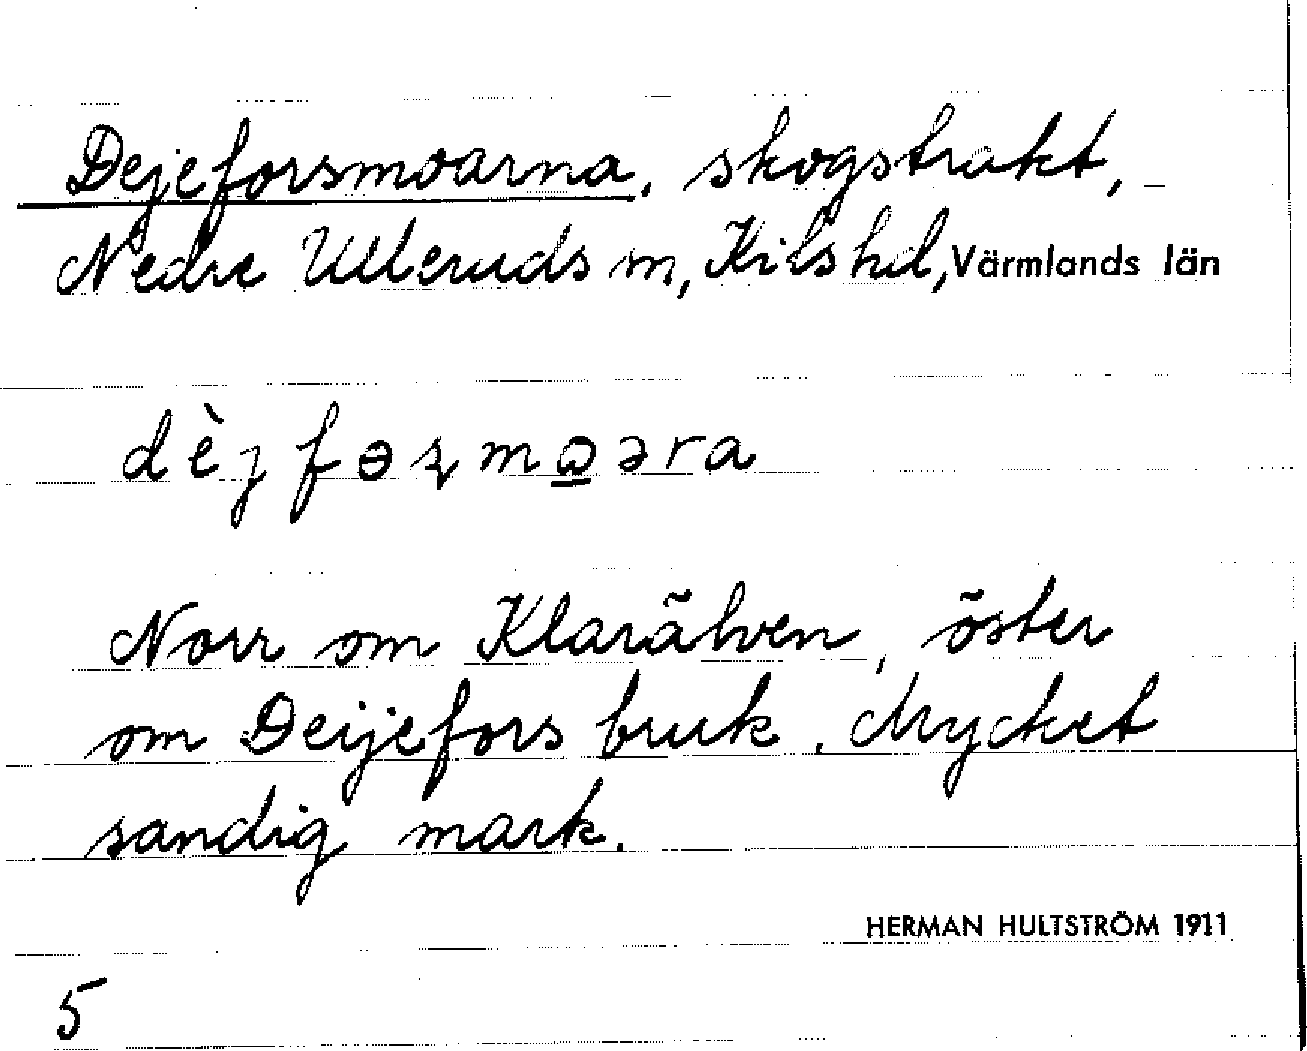 Dejeforsmoarna, skogstrakt,
Nedre Ulleruds sn, Kils hd, Värmlands län
dèjfɵʂmꞷəra
Norr om Klarälven, öster
om Deijefors bruk. Mycket
sandig mark.
HERMAN HULTSTRÖM 1911
5